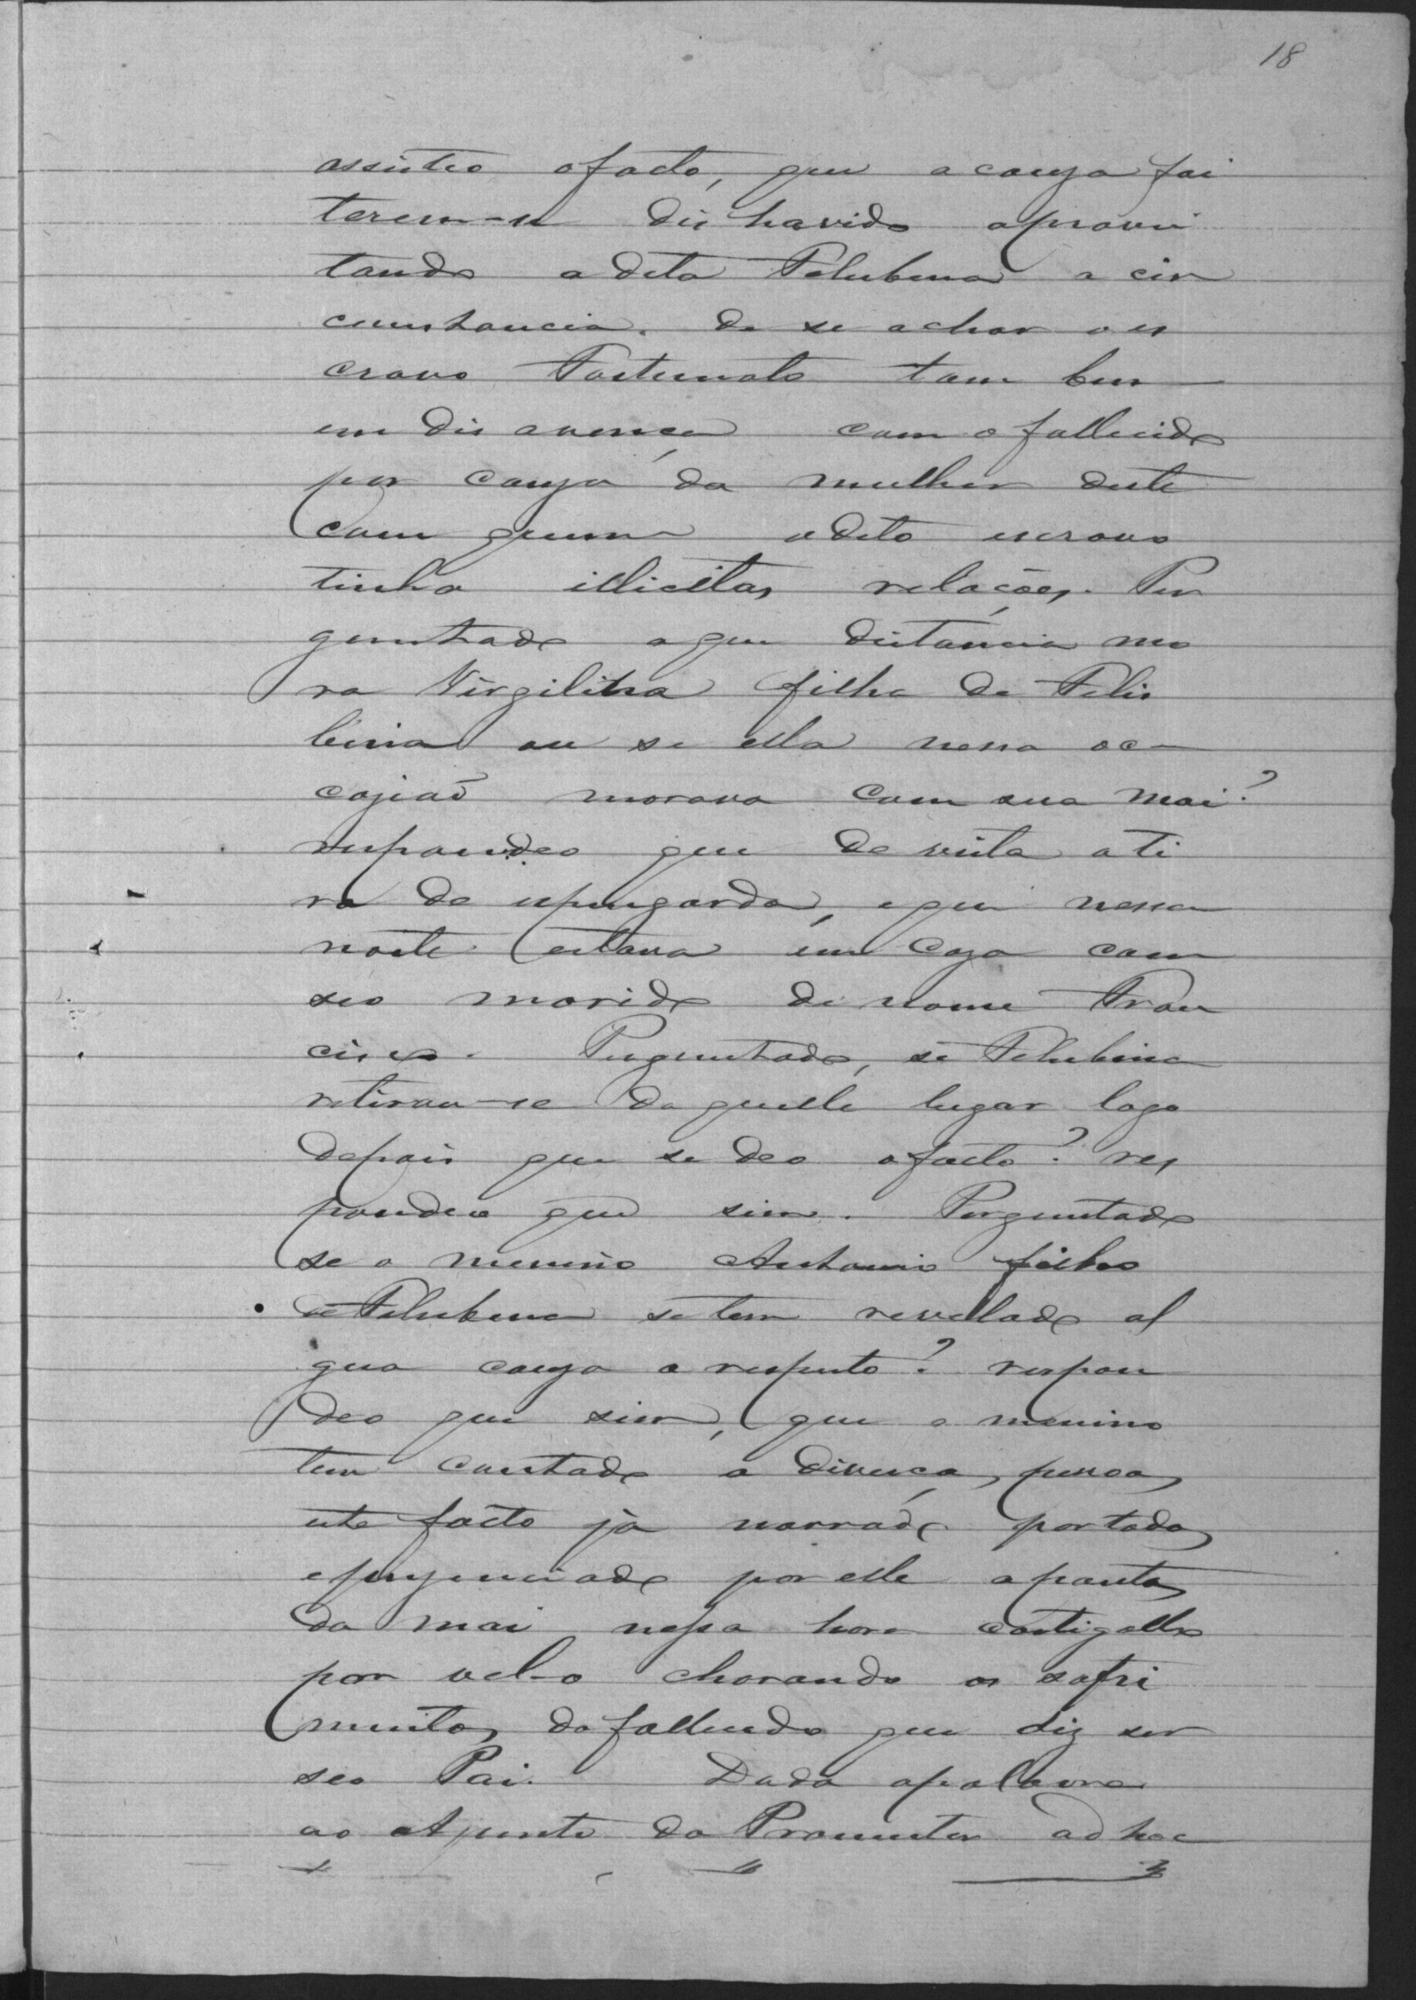 18
assistio o facto, que a cauza foi
terem-se dis havido aprovei
tando a dita Felisbina a cir
cumstancia. de se achar o es
cravo Fortunato tam bem
em dis avença com o fallecido
por cauza da mulher deste
com quem o dito escravo
tinha illicitas relações. Per
guntado a que distáncia mo
ra Virgilina filha de Felis
bina ou se ella nessa oc-
cazião morava com sua mai?
respondeo que de vista a ti
ro de espingarda, e que nessa
noite estava em caza com
seo marido de nome Fran
cisco. Perguntado, se Felisbina
retirou-se daquelle lugar logo
depois que se deo o facto? res
pondeo que sim. Perguntado
se o menino Antonio filho
de Felisbina se tem revellado al
gua couza a respeito? respon
deo que sim, que o menino
tem contado a diversas pessoas
este facto já narrado por todos
e prezenciado por elle a ponto
da mai nessa hora castigallo
por vel-o chorando os sofri
mentos do fallecido que diz ser
seo Pai. Dada a palavra
ao Ajunto do Promotor ad hoc